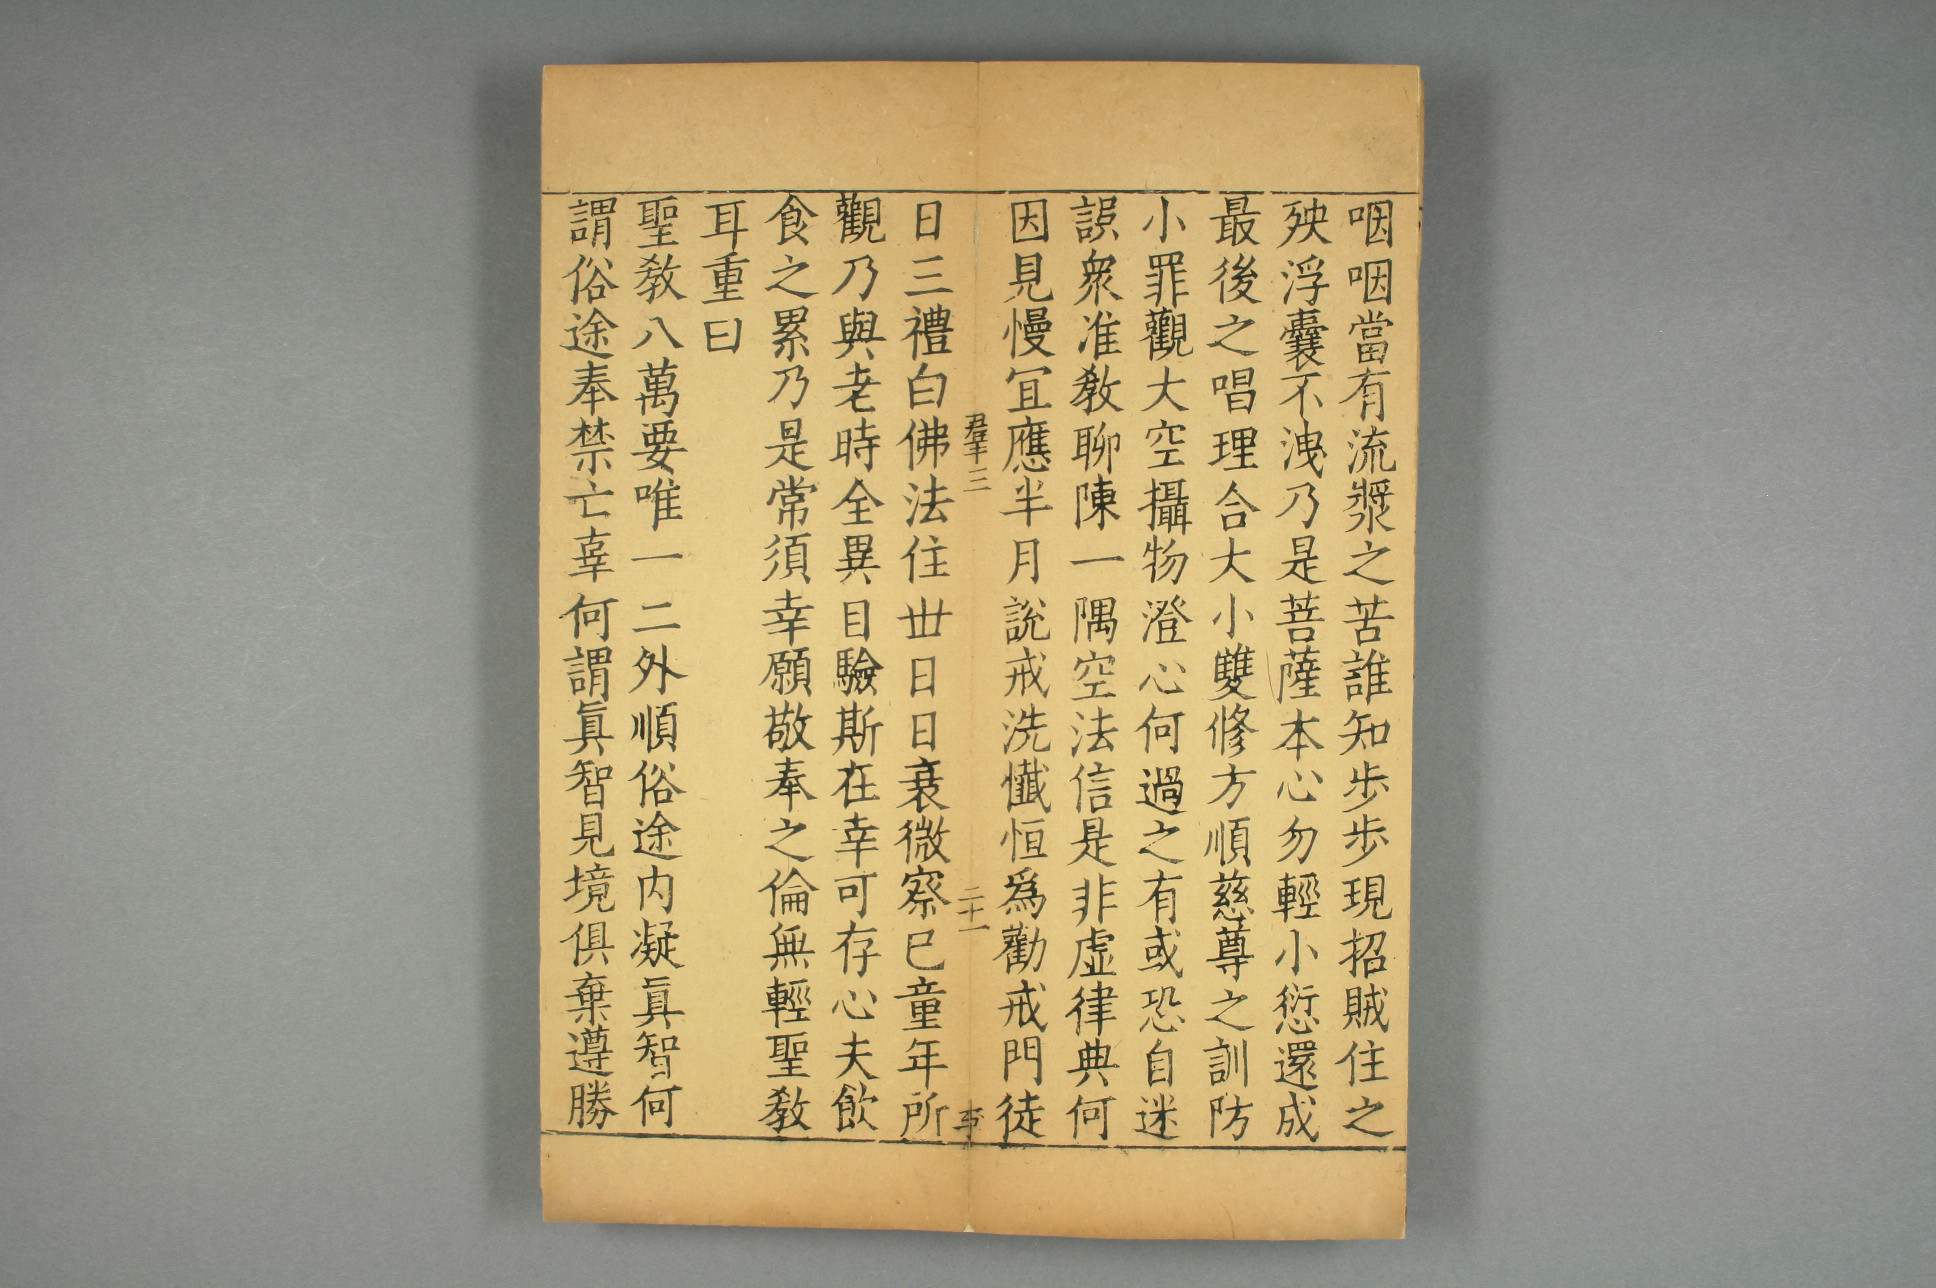 咽咽當有流漿之苦誰知步步現招賊住之
殃浮囊不洩乃是菩薩本心勿輕小愆還成
最後之唱理合大小雙修方順慈尊之訓防
小罪觀大空攝物澄心何過之有或恐自迷
誤衆准教聊陳一隅空法信是非虛律典何
因見慢冝應半月說戒洗懺恒爲勸戒門徒
羣三
二十一
日三禮白佛法住丗日日衰微察已童年所
觀乃與老時全異目驗斯在幸可存心夫飲
食之累乃是常須幸願敬奉之倫無輕聖教
耳重曰
聖教八萬要唯一二外順俗途内凝眞智何
謂俗途奉禁亡辜何謂眞智見境俱棄遵勝